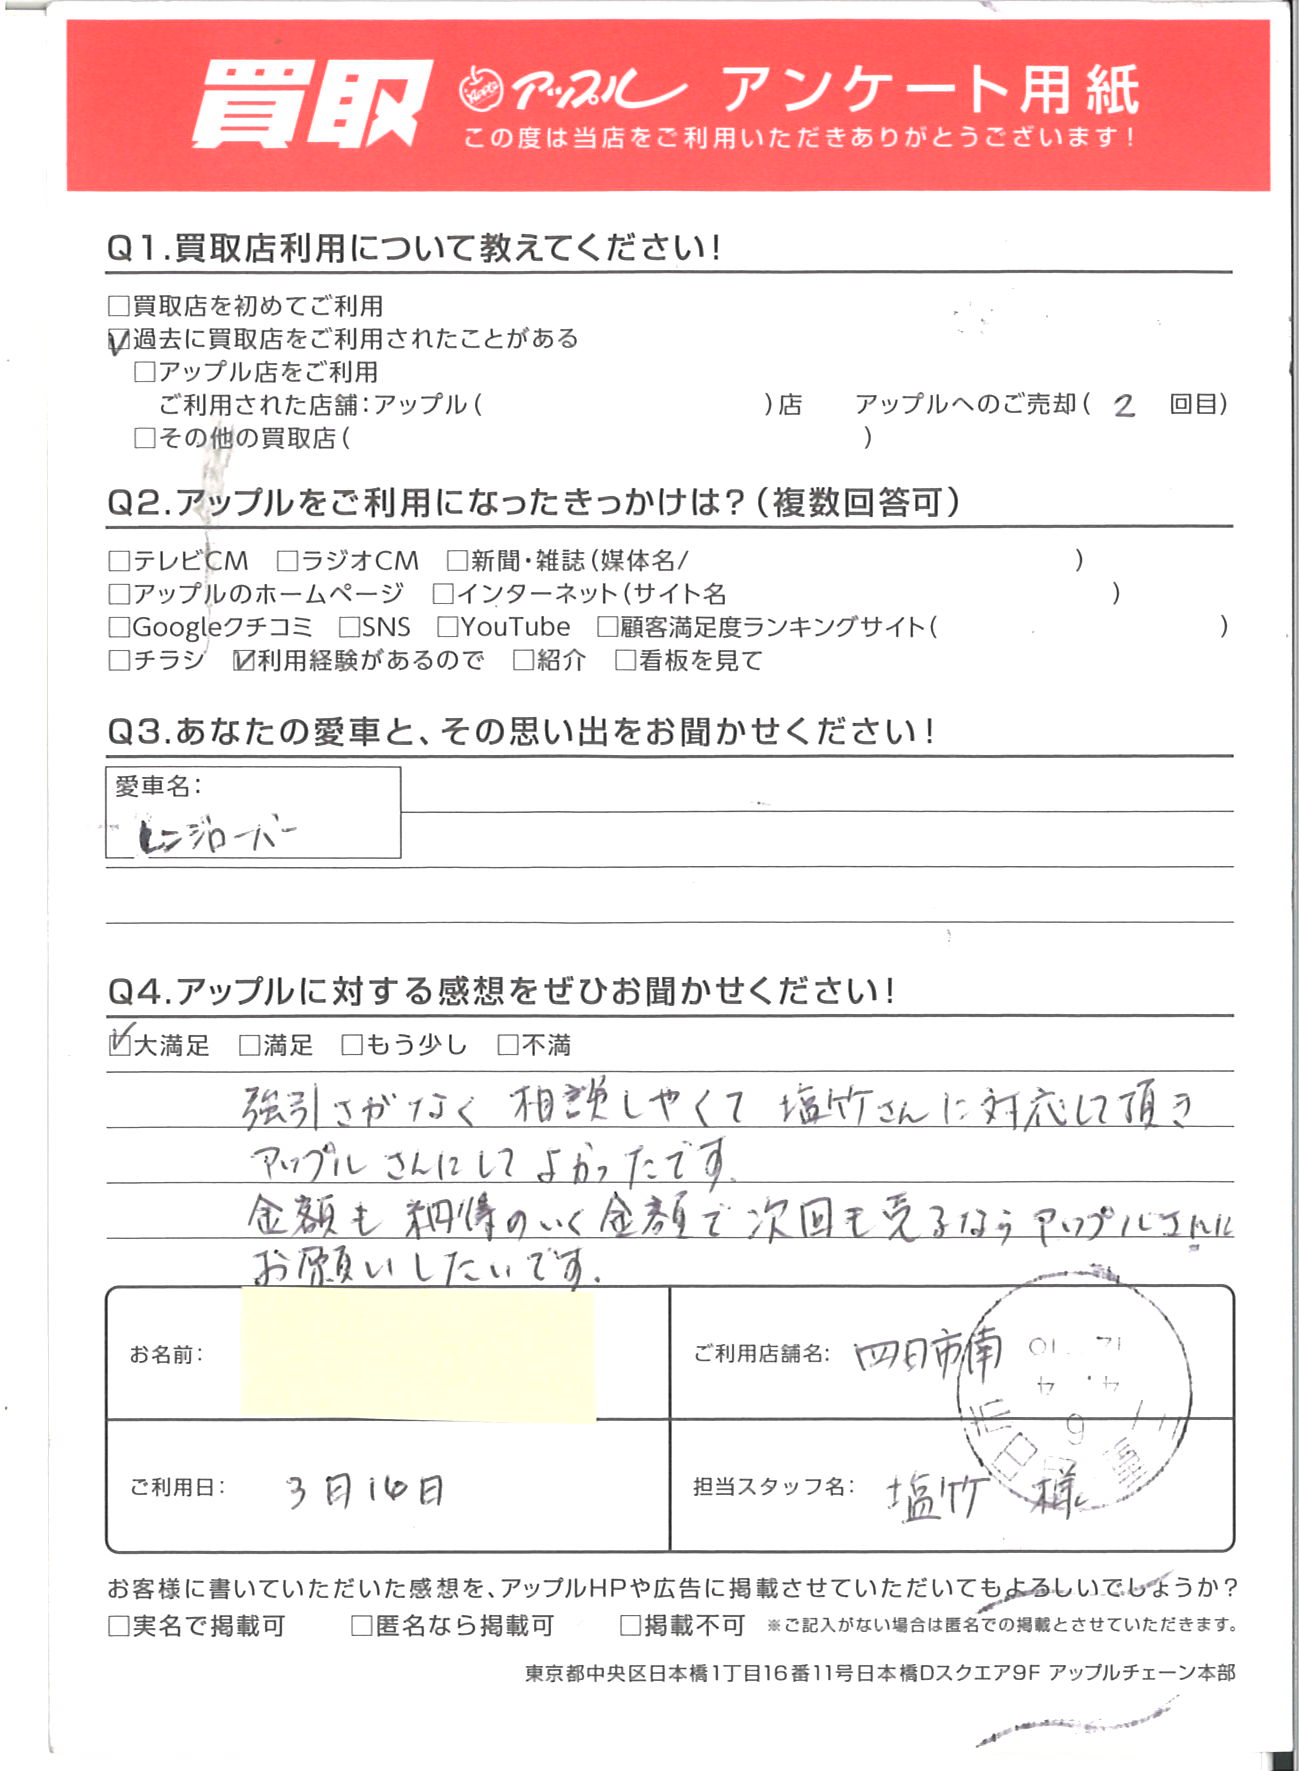 買取 アップル アンケート用紙
この度は当店をご利用いただきありがとうございます！
Q1.買取店利用について教えてください！
□買取店を初めてご利用
☑過去に買取店をご利用されたことがある
□アップル店をご利用
ご利用された店舗：アップル（ ）店 アップルへのご売却（ 2 回目）
□その他の買取店（ ）
Q2.アップルをご利用になったきっかけは？（複数回答可）
□テレビCM □ラジオCM □新聞・雑誌（媒体名/ ）
□アップルのホームページ □インターネット（サイト名 ）
□Googleクチコミ □SNS □YouTube □顧客満足度ランキングサイト（ ）
□チラシ ☑利用経験があるので □紹介 □看板を見て
Q3.あなたの愛車と、その思い出をお聞かせください！
愛車名：
レンジローバー
Q4.アップルに対する感想をぜひお聞かせください！
☑大満足 □満足 □もう少し □不満
強引さがなく 相談しやくて 塩竹さんに対応して頂き
アップルさんにしてよかったです。
金額も納得のいく金額で次回も売るなら アップルさんに
お願いしたいです。
お名前： ご利用店舗名： 四日市南
ご利用日： 3月16日 担当スタッフ名： 塩竹 様
お客様に書いていただいた感想を、アップルHPや広告に掲載させていただいてもよろしいでしょうか？
□実名で掲載可 □匿名なら掲載可 □掲載不可 ※ご記入がない場合は匿名での掲載とさせていただきます。
東京都中央区日本橋1丁目16番11号日本橋Dスクエア9F アップルチェーン本部